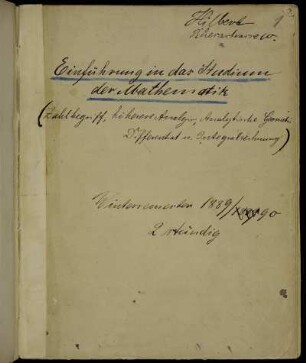 Hilbert 1
Einführung in das Studium
der Mathematik
(Zahlbegriff, höhere Analysis, Analytische Geometrie
Differential u. Integralrechnung)
Wintersemester 1889/90
2 stündig